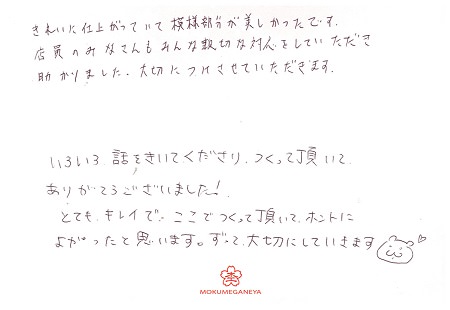 きれいに仕上がっていて模様部分が美しかったです。
店員のみなさんもみんな親切な対応をしていただき
助かりました。大切につけさせていただきます。
いろいろ話をきいてくださり、つくって頂いて
ありがとうございました!
とても、キレイで、ここでつくって頂いて、ホントに
よかったと思います。ずっと大切にしていきます
MOKUMEGANEYA